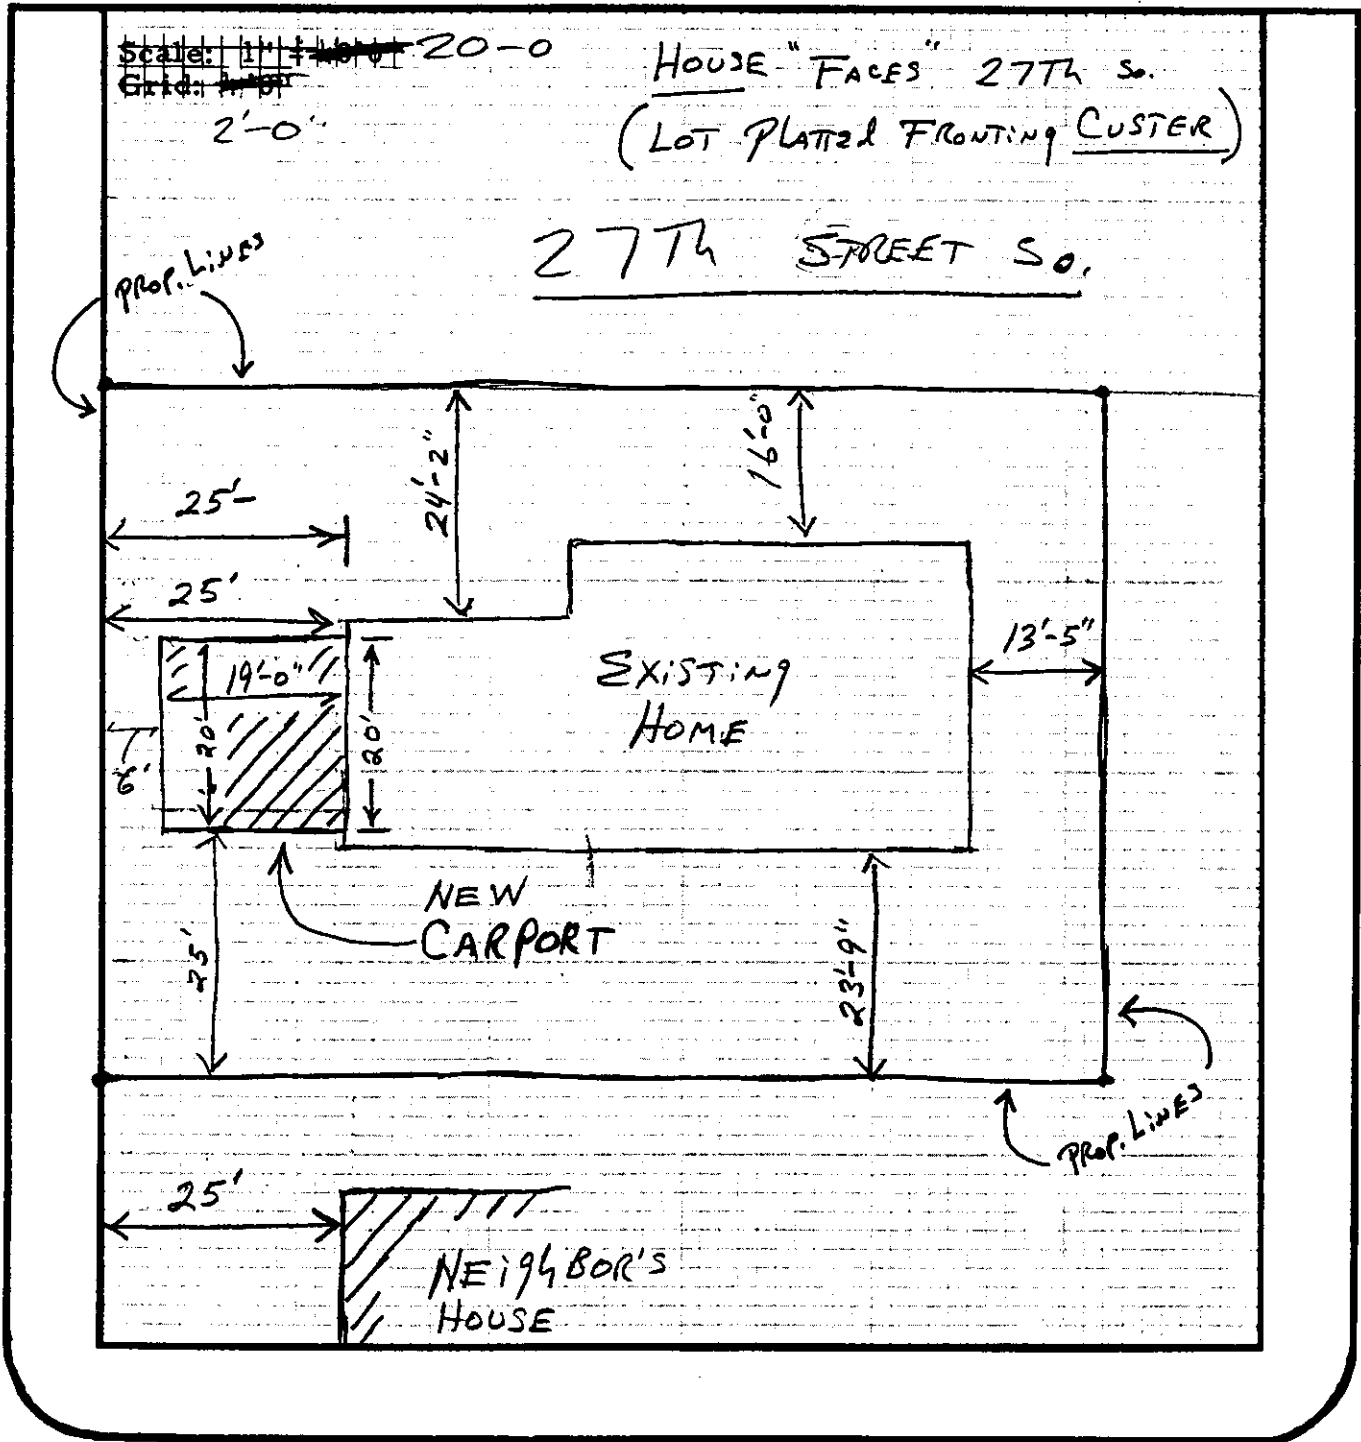 Scale: 1" = 20-0
Grid:
2'-0"
HOUSE "FACES" 27Th So.
(LOT PLATTEd FRONTiNg CUSTER)
27Th STREET So.
PROP. LiNES
24'-2"
16'-0"
25'-
25'
13'-5"
19'-0"
EXiSTiNg
HOME
20'
20'
6'
NEW
CARPORT
25'
23'-9"
PROP. LiNES
25'
NEighBOR'S
HOUSE